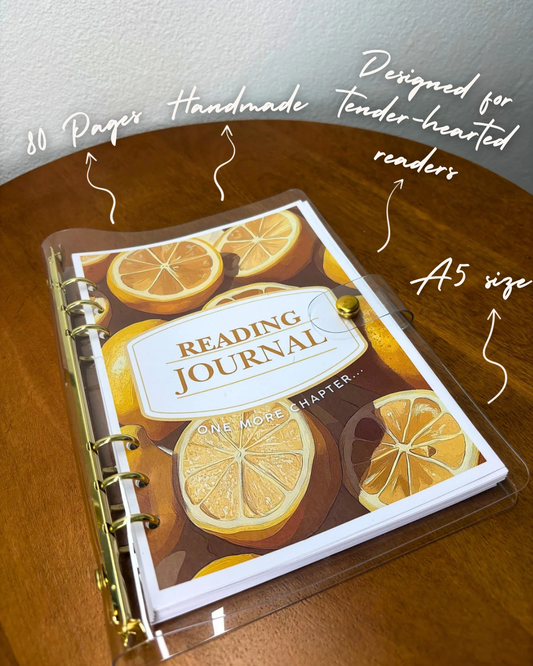 80 Pages
Handmade
Designed for
Tender-hearted
readers
A5 size
READING
JOURNAL
ONE MORE CHAPTER...